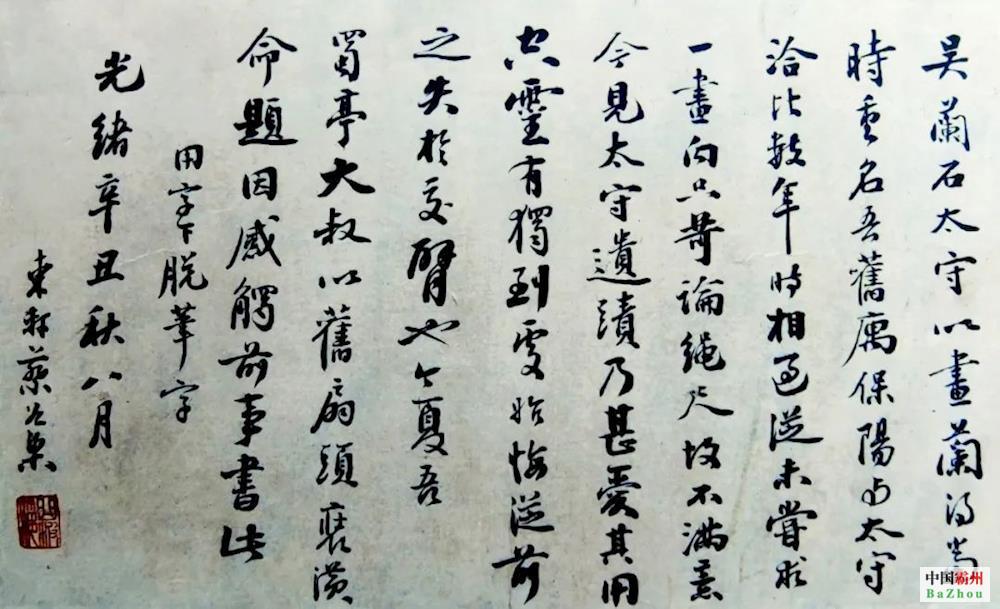 吴蘭石太守以畫蘭得當
時重名吾舊寓保陽與太守
洽比數年時相過從未嘗求
一畫向只苛論繩尺故不滿意
今見太守遺蹟乃甚愛其用
空靈有獨到處始悔從前
之失於交臂也今夏吾
蜀亭大叔以舊扇頭裱潢
命題因感觸前事書此
用字下脱筆字
光緒辛丑秋八月
東軒蔡
中国霸州
BaZhou